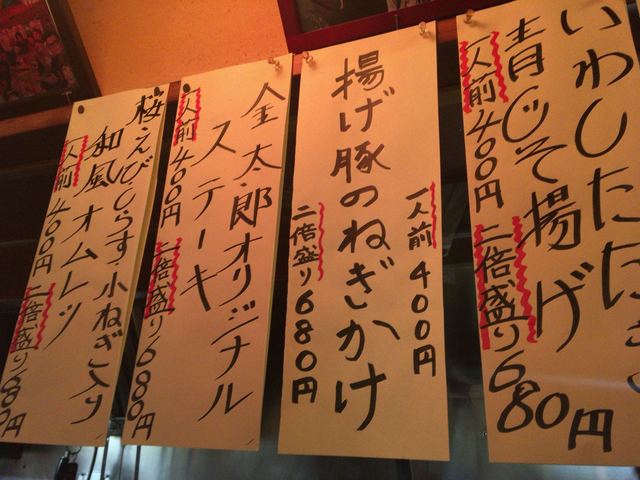 いわしたたき
青じそ揚げ
一人前 400円 二倍盛り 680円
揚げ豚のねぎかけ
一人前 400円
二倍盛り 680円
金太郎オリジナル
ステーキ
一人前 400円 二倍盛り 680円
桜えびしらす小ねぎ入り
和風オムレツ
一人前 400円 二倍盛り 680円